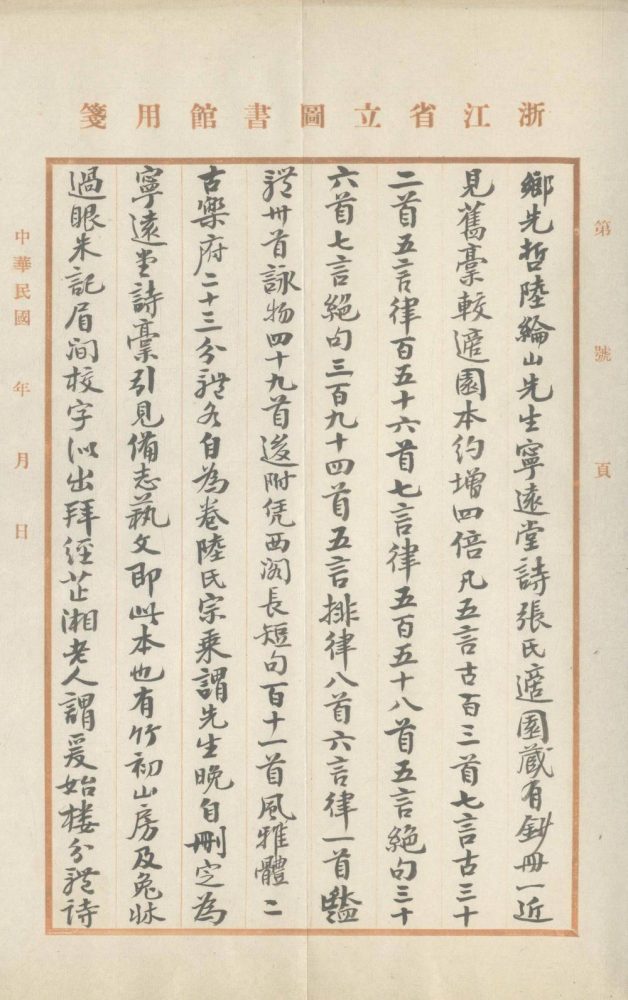 浙江省立圖書館用箋
第　號　頁
鄉先哲陸綸山先生寧遠堂詩張氏適園藏有鈔冊一近
見舊稾較適園本約增四倍凡五言古百三首七言古三十
二首五言律百五十六首七言律五百五十八首五言絕句三十
六首七言絕句三百九十四首五言排律八首六言律一首豔
體卅首詠物四十九首後附凭西閣長短句百十一首風雅體二
古樂府二十三分體各自為卷陸氏宗乘謂先生晚自刪定為
寧遠堂詩稾引見備志藝文即此本也有竹初山房及兔牀
過眼朱記眉間校字似出拜經芷湘老人謂爰始樓分體詩
中華民國　年　月　日